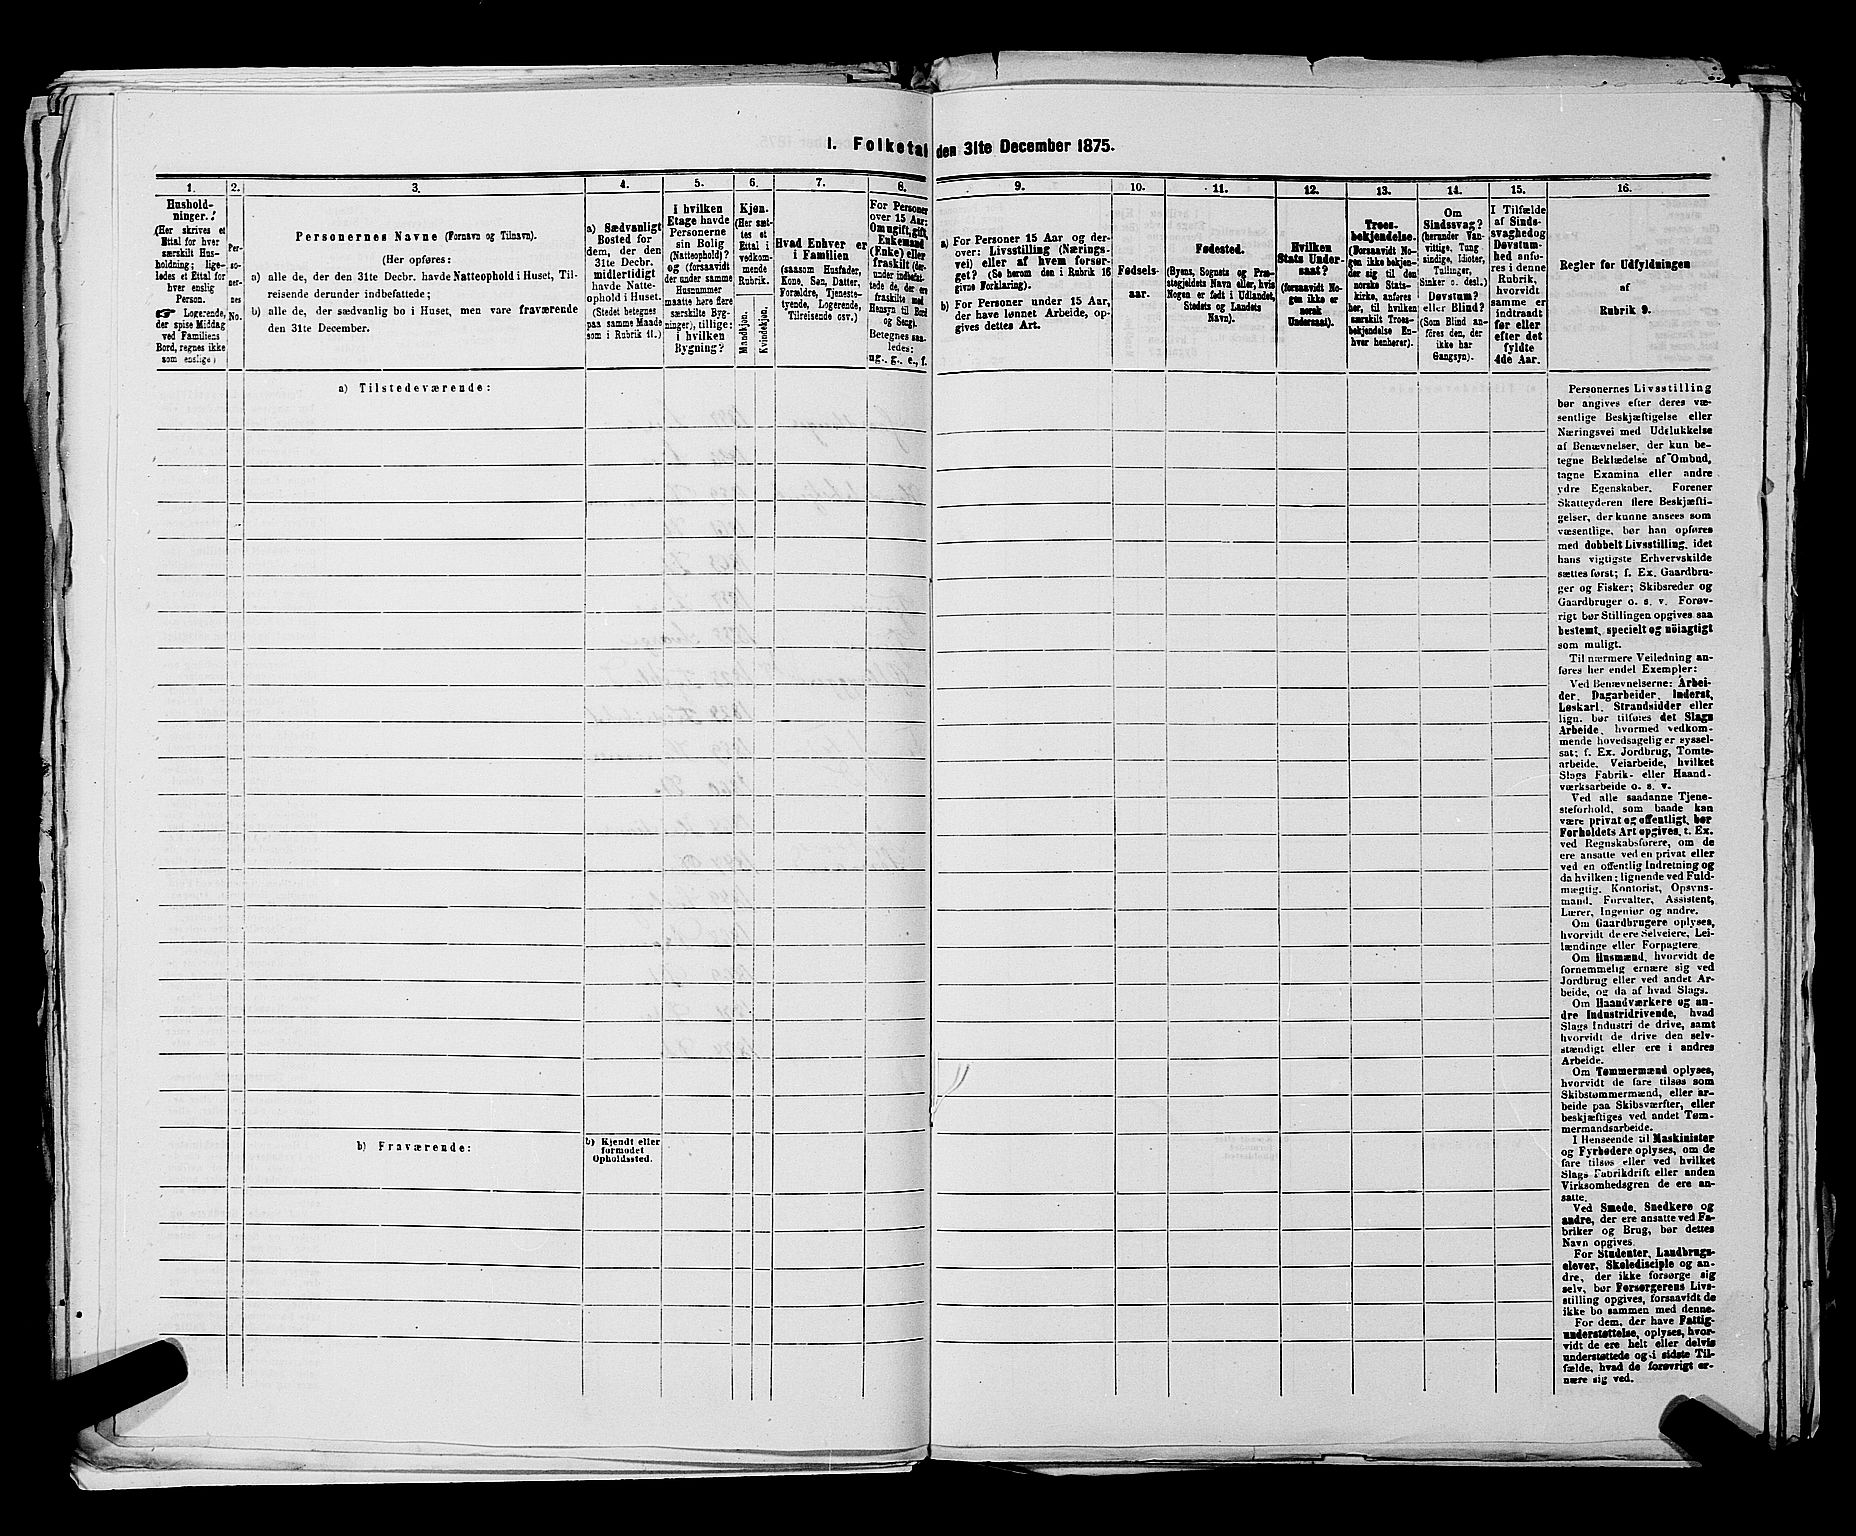 I. Folketal den 31te December 1875.
1.
Hushold-
ninger.
(Her skrives et
Ettal for hver
særskilt Hus-
holdning; lige-
ledes et Ettal for
hver enslig
Person.
☞ Logerende,
der spise Middag
ved Familiens
Bord, regnes ikke
som enslige)
2.
Per-
so-
ner-
nes
No.
3.
Personernes Navne (Fornavn og Tilnavn).
(Her opføres:
a) alle de, der den 31te Decbr. havde Natteophold i Huset, Til-
reisende derunder indbefattede;
b) alle de, der sædvanlig bo i Huset, men vare fraværende
den 31te December.
4.
a) Sædvanligt
Bosted for
dem, der den
31te Decbr.
midlertidigt
havde Natte-
ophold i Huset.
(Stedet betegnes
paa samme Maade
som i Rubrik 11.)
5.
I hvilken
Etage havde
Personerne
sin Bolig
(Natteophold)?
og (forsaavidt
der under samme
Husnummer
maatte høre flere
særskilte Byg-
ninger), tillige:
i hvilken
Bygning?
6.
Kjøn.
(Her sæt-
tes et
Ettal i
vedkom-
mende
Rubrik.
Mandkjøn.
Kvindekjøn.
7.
Hvad Enhver er
i Familien
(saasom Husfader,
Kone, Søn, Datter,
Forældre, Tjeneste-
tyende, Logerende,
Tilreisende osv.)
8.
For Personer
over 15 Aar:
Om ugift, gift,
Enkemand
(Enke) eller
fraskilt (der-
under indbefat-
tede de, der ere
fraskilte med
Hensyn til Bord
og Seng).
Betegnes saa-
ledes:
ug., g., e., f.
9.
a) For Personer 15 Aar og der-
over: Livsstilling (Nærings-
vei) eller af hvem forsør-
get? (Se herom den i Rubrik 16
givne Forklaring).
b) For Personer under 15 Aar,
der have lønnet Arbeide, op-
gives dettes Art.
10.
Fødsels-
aar.
11.
Fødested.
(Byens, Sognets og Præ-
stegjeldets Navn eller, hvis
Nogen er født i Udlandet,
Stedets og Landets
Navn).
12.
Hvilken
Stats Under-
saat?
(forsaavidt No-
gen ikke er
norsk
Undersaat).
13.
Troes-
bekjendelse.
(Forsaavidt No-
gen ikke bekjen-
der sig til den
norske Stats-
kirke, anføres
her, til hvilken
særskilt Troes-
bekjendelse En-
hver henhører).
14.
Om
Sindssvag?
(herunder Van-
vittige, Tung-
sindige, Idioter,
Tullinger,
Sinker o. desl.)
Døvstum?
eller Blind?
(Som Blind an-
føres den, der
ikke har
Gangsyn).
15.
I Tilfælde
af Sinds-
svaghed og
Døvstum-
hed anfø-
res i denne
Rubrik,
hvorvidt
samme er
indtraadt
før eller
efter det
fyldte
4de Aar.
16.
Regler for Udfyldningen
af
Rubrik 9.
a) Tilstedeværende:
b) Fraværende:
b) Kjendt eller
formodet
Opholdssted.
Personernes Livsstilling
bør angives efter deres væ-
sentlige Beskjæftigelse eller
Næringsvei med Udelukkelse
af Benævnelser, der kun be-
tegne Beklædelse af Ombud,
tagne Examina eller andre
ydre Egenskaber. Forener
Skatteyderen flere Beskjæfti-
gelser, der kunne ansees som
væsentlige, bør han opføres
med dobbelt Livsstilling, idet
hans vigtigste Erhvervskilde
sættes først; f. Ex. Gaardbru-
ger og Fisker; Skibsreder og
Gaardbruger o. s. v. Forøv-
rigt bør Stillingen opgives saa
bestemt, specielt og nøiagtigt
som muligt.
Til nærmere Veiledning an-
føres her endel Exempler:
Ved Benævnelserne: Arbei-
der, Dagarbeider, Inderst,
Løskarl, Strandsidder eller
lign. bør tilføies det Slags
Arbeide, hvormed vedkom-
mende hovedsagelig er syssel-
sat; f. Ex. Jordbrug, Tomte-
arbeide, Veiarbeide, hvilket
Slags Fabrik- eller Haand-
værksarbeide o. s. v.
Ved alle saadanne Tjene-
steforhold, som baade kan
være privat og offentligt, bør
Forholdets Art opgives, t. Ex.
ved Regnskabsførere, om de
ere ansatte ved en privat eller
ved en offentlig Indretning og
da hvilken; lignende ved Fuld-
mægtig, Kontorist, Opsyns-
mand, Forvalter, Assistent,
Lærer, Ingeniør og andre.
Om Gaardbrugere oplyses,
hvorvidt de ere Selveiere, Lei-
lændinge eller Forpagtere.
Om Husmænd, hvorvidt de
fornemmelig ernære sig ved
Jordbrug eller ved andet Ar-
beide, og da af hvad Slags.
Om Haandværkere og an-
dre Industridrivende, hvad
Slags Industri de drive, samt
hvorvidt de drive den selv-
stændigt eller ere i andres
Arbeide.
Om Tømmermænd oplyses,
hvorvidt de fare tilsøs som
Skibstømmermænd, eller ar-
beide paa Skibsværfter, eller
beskjæftiges ved andet Tøm-
mermandsarbeide.
I Henseende til Maskinister
og Fyrbødere oplyses, om de
fare tilsøs eller ved hvilket
Slags Fabrikdrift eller anden
Virksomhedsgren de ere an-
satte.
Ved Smede, Snedkere og
andre, der ere ansatte ved Fa-
briker og Brug, bør dettes
Navn opgives.
For Studenter, Landbrugs-
elever, Skoledisciple og an-
dre, der ikke forsørge sig
selv, bør Forsørgerens Livs-
stilling opgives, forsaavidt de
ikke bo sammen med denne.
For dem, der have Fattig-
understøttelse, oplyses, hvor-
vidt de ere helt eller delvis
understøttede og i sidste Til-
fælde, hvad de forøvrigt er-
nære sig ved.